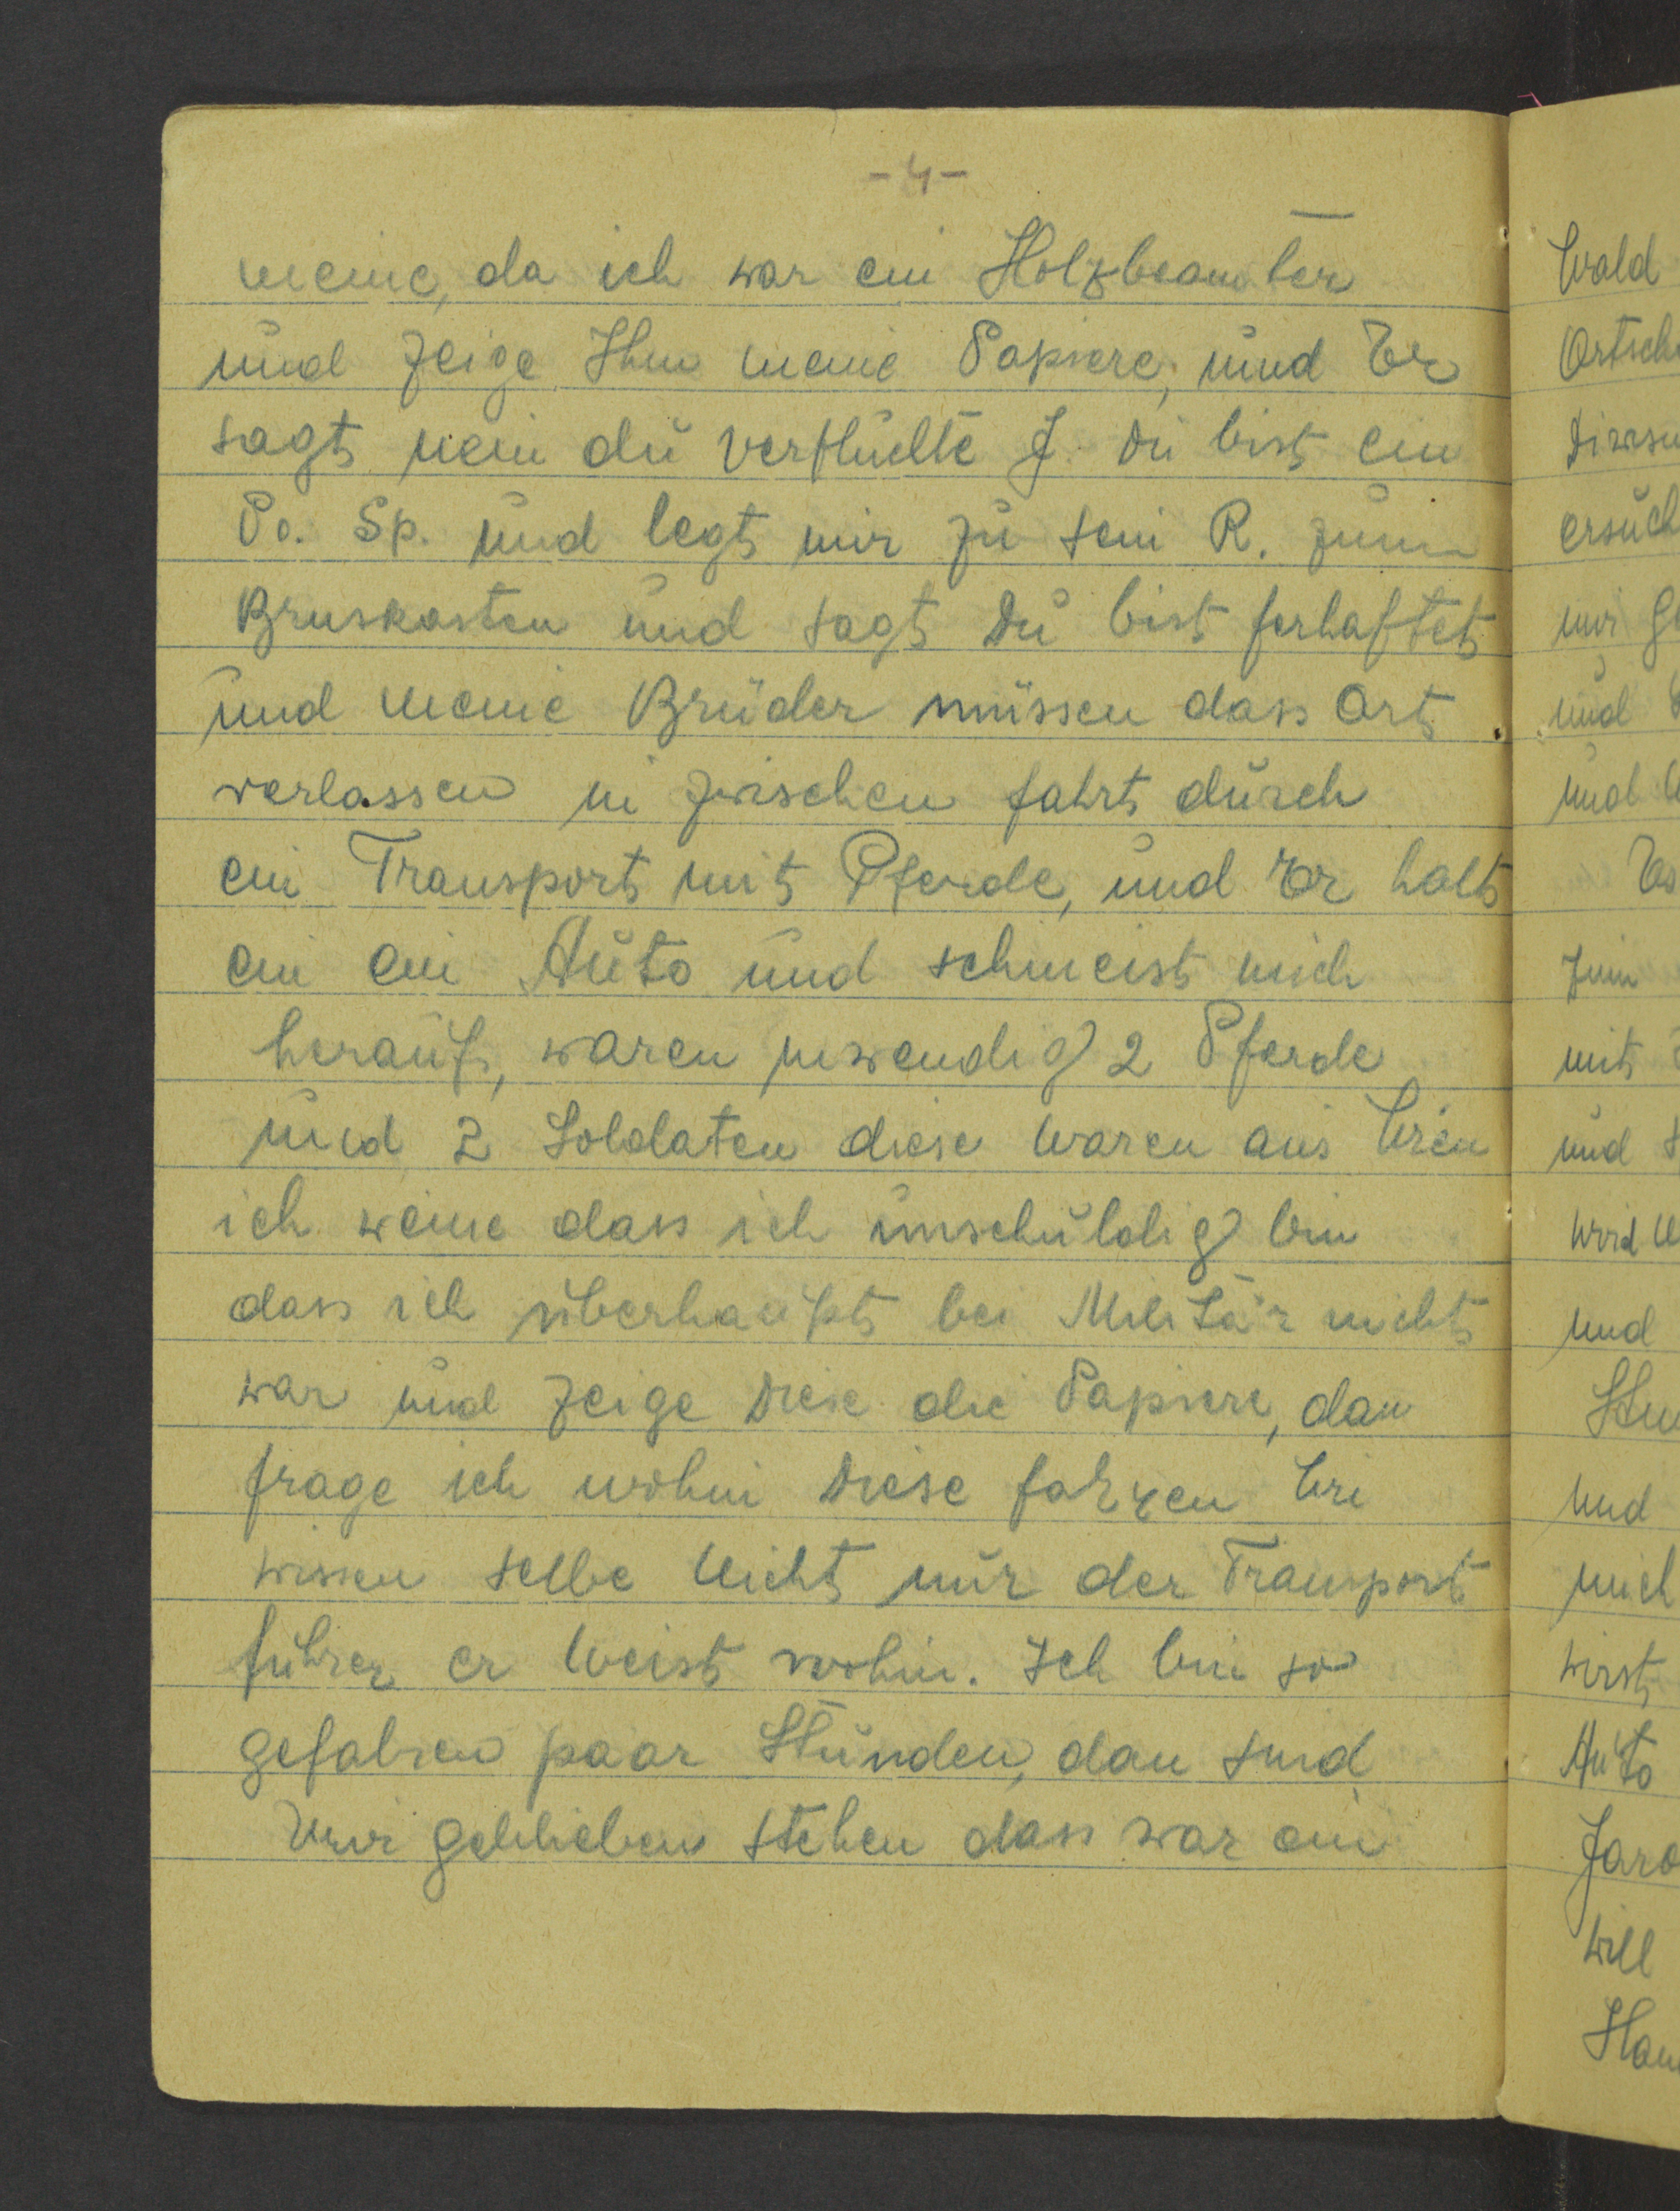 - 4 -
meine, da ich war ein Holzbeamter
und zeige Ihm meine Papiere, und Er
sagt nein du verfluchte J. Du bist ein
Po. Sp. und legt mir zu sein R. zum
Bruskasten und sagt Du bist ferhaftet
und meine Brüder müssen dass Ort
verlassen in zwischen fahrt durch
ein Transport mit Pferde, und Er halt
ein ein Auto und schmeist mich
herauf, waren inwendig 2 Pferde
und 2 Soldaten diese waren aus Wien
ich weine dass ich unschuldig bin
dass ich überhaupt bei Militär nicht
war und zeige Diese die Papiere, dan
frage ich wohin Diese fahren
wissen selbe nicht nur der Transport
führer er weist wohin. Ich bin so
gefahren paar Stunden, dan sind
wir geblieben stehen dass war ein
Wald
ersuch
und
und
Es
mit
und
wird
und
und
mich
wirst
Auto
Jaro
will